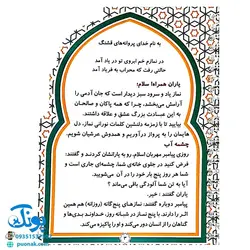 به نام خدای پروانه‌های قشنگ
در نمازم خم ابروی تو در یاد آمد
حالتی رفت که محراب به فریاد آمد
یاران همراه! سلام؛
نماز یاد و سرود سبز دیدار است که جان آدمی را
آرامش می‌بخشد، چرا که همه پاکان و صالحان
به این عبادت بزرگ عشق و علاقه داشتند.
بیایید تا با زمزمه دلنشین کلمات نورانی نماز، دل
هایمان را به پرواز درآوریم و همدوش عرشیان شویم.
چشمه آب
روزی پیامبر مهربان اسلام، رو به یارانشان کردند و گفتند:
فرض کنید در جلوی خانه‌ی شما، چشمه‌ای جاری است و
شما هر روز پنج بار خود را در آن می‌شویید.
آیا به تن شما آلودگی باقی می‌ماند؟
گفتند: خیر.
پیامبر گفتند: نمازهای پنج‌گانه (روزانه) هم همین
اثر را دارند. با پنج نماز در شبانه روز، خداوند بدی‌ها و
گناهان را از انسان دور می‌کند و او را پاکیزه می‌کند.
۳
پونک
puonak.com